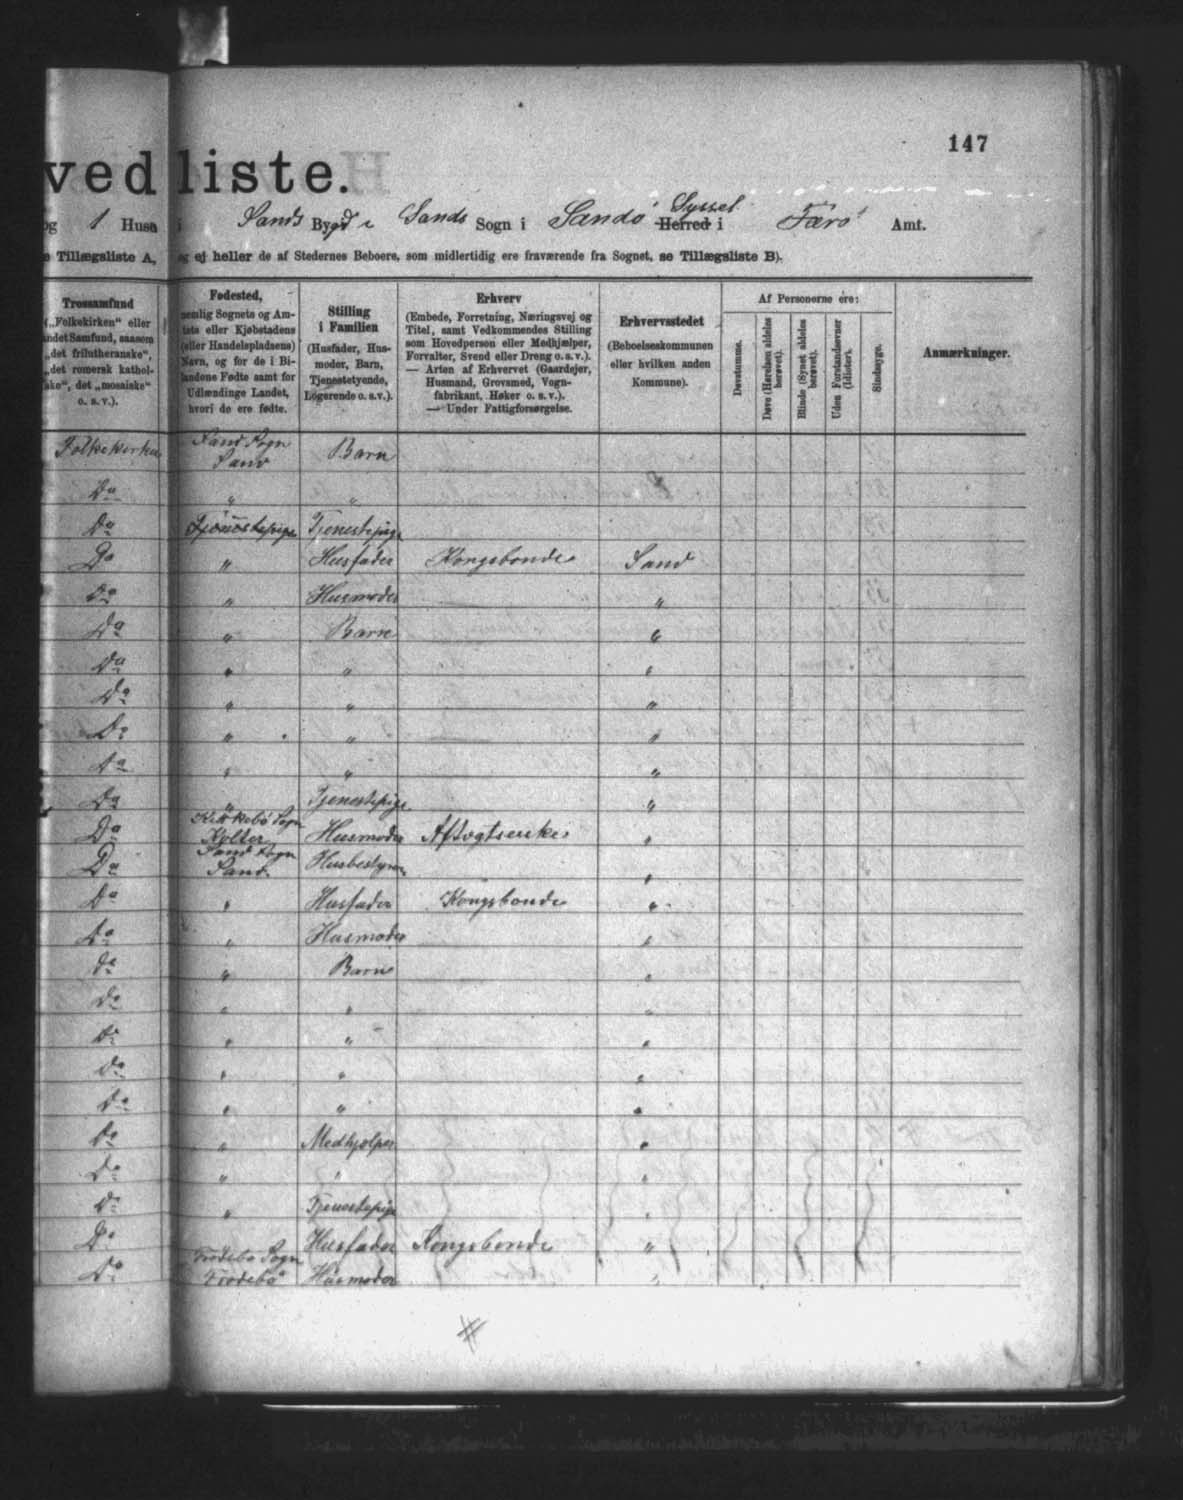 147
vedliste.
og 1 Huse i Sands Bygd i Sands Sogn i Sandö Syssel Herred i Færö Amt.
e Tillægsliste A, og ej heller de af Stedernes Beboere, som midlertidig ere fraværende fra Sognet, se Tillægsliste B).
Trossamfund
(„Folkekirken“ eller
andet Samfund, saasom
„det frilutheranske“,
„det romersk kathol-
ske“, det „mosaiske“
o. s. v.).
Fødested,
nemlig Sognets og Am-
tets eller Kjøbstadens
(eller Handelspladsens)
Navn, og for de i Bi-
landene Fødte samt for
Udlændinge Landet,
hvori de ere fødte.
Stilling
i Familien
(Husfader, Hus-
moder, Barn,
Tjenestetyende,
Logerende o. s. v.).
Erhverv
(Embede, Forretning, Næringsvej og
Titel, samt Vedkommendes Stilling
som Hovedperson eller Medhjælper,
Forvalter, Svend eller Dreng o. s. v.).
— Arten af Erhvervet (Gaardejer,
Husmand, Grovsmed, Vogn-
fabrikant, Høker o. s. v.).
— Under Fattigforsørgelse.
Erhvervsstedet
(Beboelseskommunen
eller hvilken anden
Kommune).
Af Personerne ere:
Døvstumme.
Døve (Hørelsen aldeles
berøvet).
Blinde (Synet aldeles
berøvet).
Uden Forstandsevner
(Idioter).
Sindssyge.
Anmærkninger.
Folkekirken Sand Sogn
Sand Barn
Do " "
Do Tjenestepige Tjenestepige
Do " Husfader Kongsbonde Sand
Do " Husmoder "
Do " Barn "
Do " " "
Do " " "
Do " " "
Do " " "
Do " Tjenestepige "
Do Kirkebö Sogn
Kolter Husmoder Aftægtsenke "
Do Sand Sogn
Sand Husbestyrer "
Do " Husfader Kongsbonde "
Do " Husmoder "
Do " Barn "
Do " " "
Do " " "
Do " " "
Do " " "
Do " Medhjælper "
Do " " "
Do " Tjenestepige "
Do " Husfader Kongsbonde "
Do Frodebö Sogn
Frodebö Husmoder "